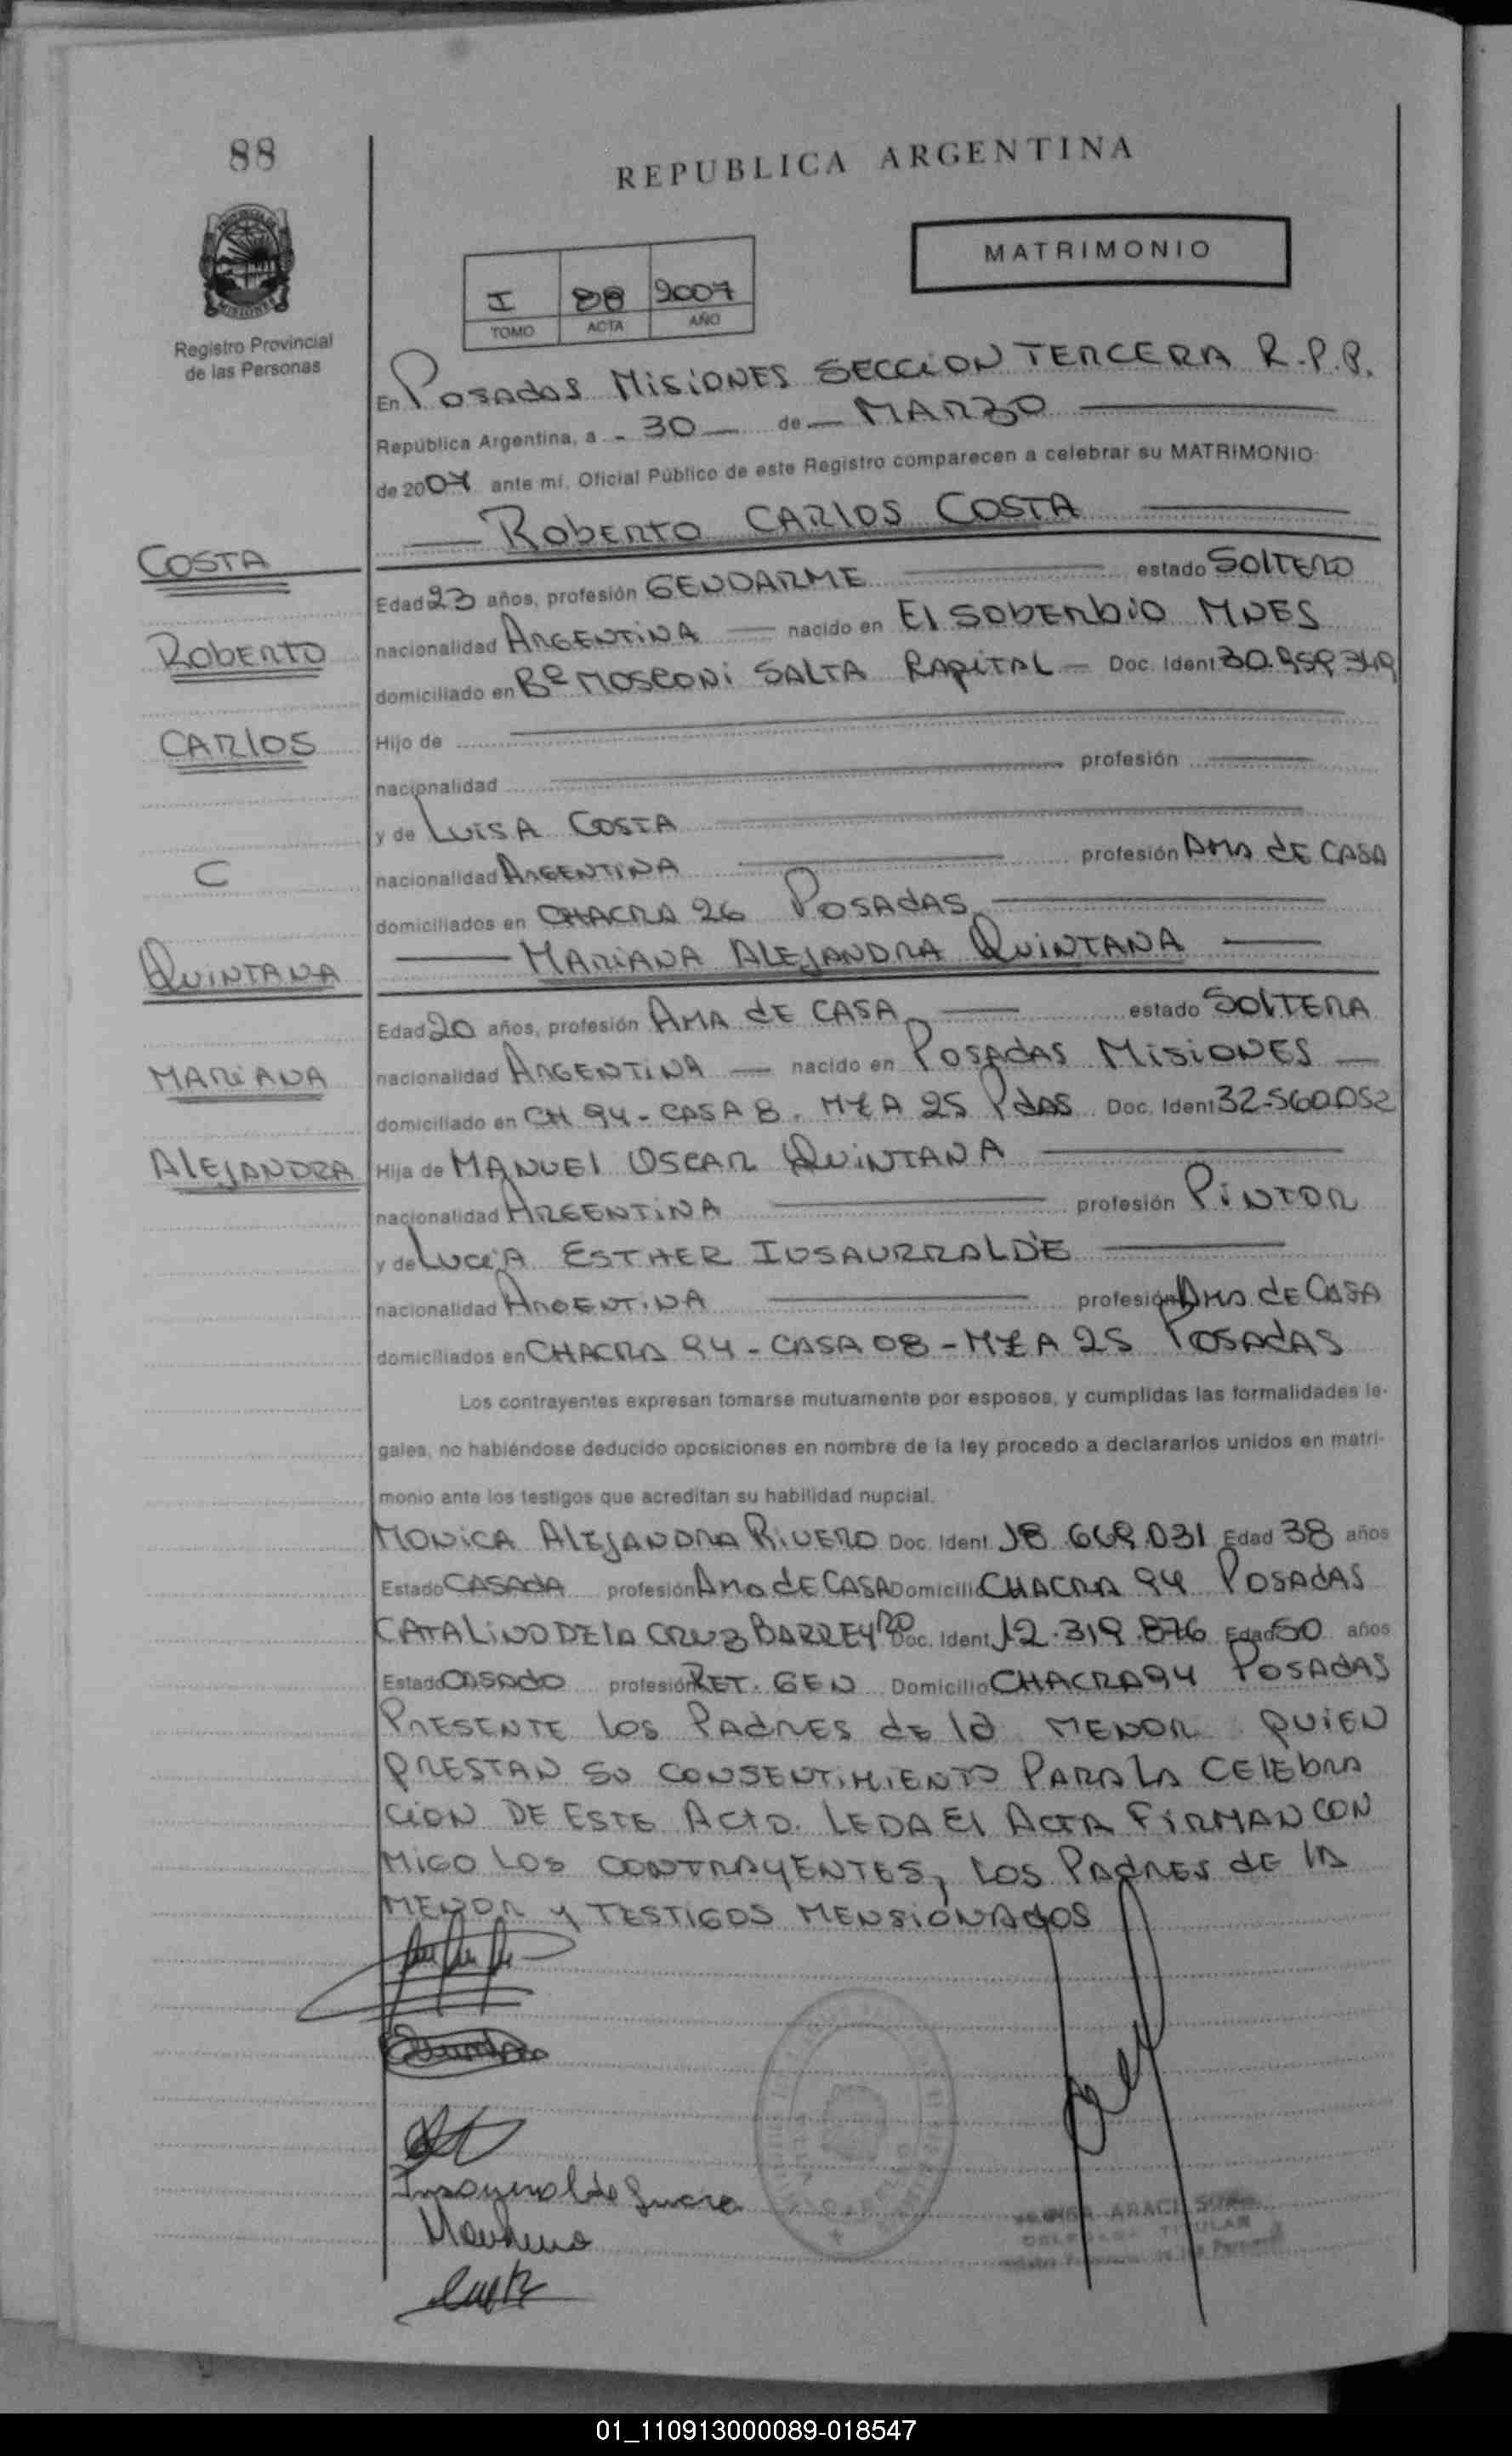 88
REPUBLICA ARGENTINA
MATRIMONIO
I 88 2007
TOMO ACTA AÑO
Registro Provincial
de las Personas
En POSADAS MISIONES SECCION TERCERA R.P.P.
República Argentina, a - 30 — de — MARZO
de 2007 ante mí, Oficial Público de este Registro comparecen a celebrar su MATRIMONIO
ROBERTO CARLOS COSTA
COSTA
Edad 23 años, profesión GENDARME estado SOLTERO
ROBERTO
nacionalidad ARGENTINA — nacido en El SObERbIO MNES
domiciliado en Bº MOSCONI SALTA CAPITAL — Doc. Ident 30.959.349
CARLOS
Hijo de
nacionalidad profesión
y de LUISA COSTA
C
nacionalidad ARGENTINA profesión AMA dE CASA
domiciliados en CHACRA 26 POSADAS
MARIANA ALEJANDRA QUINTANA
QUINTANA
Edad 20 años, profesión AMA dE CASA estado SOLTERA
MARIANA
nacionalidad ARGENTINA — nacido en POSADAS MISIONES —
domiciliado en CH 94 - CASA 8. MZ A 25 PdAS Doc. Ident 32.560.052
ALEJANDRA
Hija de MANUEL OSCAR QUINTANA
nacionalidad ARGENTINA profesión PINTOR
y de LUCIA ESTHER INSAURRALDE
nacionalidad ARGENTINA profesión AMA dE CASA
domiciliados en CHACRA 94 - CASA 08 - MZ A 25 POSADAS
Los contrayentes expresan tomarse mutuamente por esposos, y cumplidas las formalidades le-
gales, no habiéndose deducido oposiciones en nombre de la ley procedo a declararlos unidos en matri-
monio ante los testigos que acreditan su habilidad nupcial.
MONICA ALEJANDRA RIVERO Doc. Ident. 18.669.031 Edad 38 años
Estado CASADA profesión AMA dE CASA Domicilio CHACRA 94 POSADAS
CATALINO DE la CRUZ BARREYRO Doc. Ident. 12.319.876 Edad 50 años
Estado CASADO profesión RET. GEN Domicilio CHACRA 94 POSADAS
PRESENTE los PADRES dE la MENOR QUIEN
PRESTAN SU CONSENTIMIENTO PARA LA CELEbRA
CION DE ESTE ACTO. LEDA El ACTA FIRMAN CON
MIGO LOS CONTRAYENTES, LOS PADRES dE la
MENOR y TESTIGOS MENSIONADOS
TITULAR
01_110913000089-018547